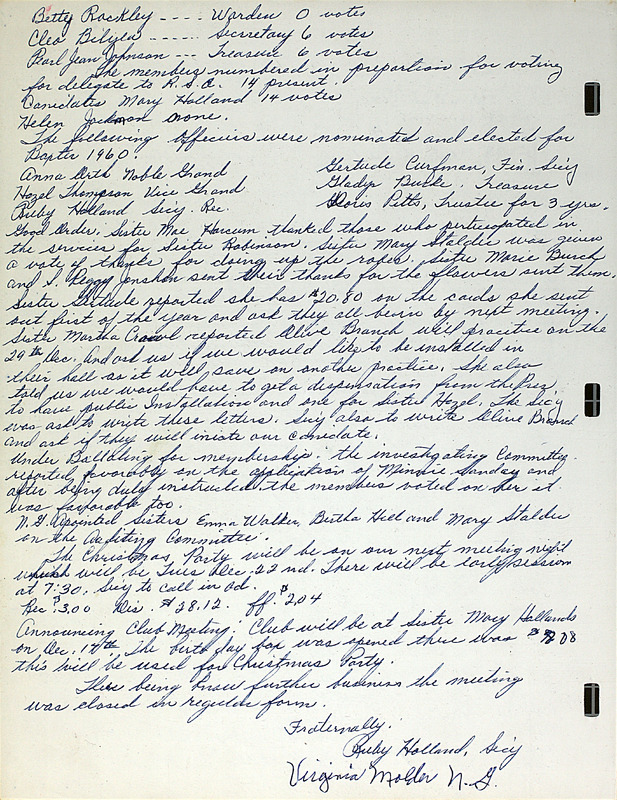 Betty Rockley ---- Warden 0 votes
Cleo Bilyea ----- Secretary 6 votes
Pearl Jean Johnson --- Treasure 6 votes
The members numbered in preportion for voting
for delegate to R.S.A. 14 present.
Canidates Mary Holland 14 votes
Helen Jackson none.
The following officers were nominated and elected for
1960.
Anna Orth Noble Grand
Gertude Curfman, Fin. Sec'y
Hazel Thompson Vice Grand
Gladys Burke, Treasure
Ruby Holland Sec'y. Rec.
Doris Pitts, Trustee for 3 yrs.
Good Order. Sister Mae Harcum thanked those who perticipated in
the services for Sister Robinson. Sister Mary Stalder was given
a vote of thanks for doing up the robes. Sister Marie Burch
and S. Peggy Jonshon sent their thanks for the flowers sent them.
Sister Gertrude reported she has $20.80 on the cards she sent
out first of the year and ask they all be in by next meeting.
Sister Martha Crowl reported Olive Branch will practice on the
29th Dec. And ask us if we would like to be installed in
their hall as it will save on another practice. She also
told us we would have to get a dispensation from the Pres.
to have public Installation and one for Sister Hazel. The Sec'y
was ask to write these letters. Sec'y also to write Olive Branch
and ask if they will iniate our canidate.
Under Balloting for membership. the investigating Committee
reported favorably on the application of Minnie Sunday and
after being duly instructed the members voted on her it
was favorable too.
N.G. apointed Sisters Emma Walker, Bertha Heel and Mary Stalder
on the Auditing Committee.
The Christmas Party will be on our next meeting night
which will be Tues Dec. 22 nd. There will be early session
at 7:30. Sec'y to call in ad.
Rec $3.00 Dis. $28.12. ff. $2.04
Announcing Club Meeting: Club will be at Sister Mary Hollands
on Dec. 17th. The birthday box was opened there was $ 08
this will be used for Christmas Party.
There being know further business the meeting
was closed in reguler form.
Fraternally.
Ruby Holland, Sec'y
Virginia Molder N.G.